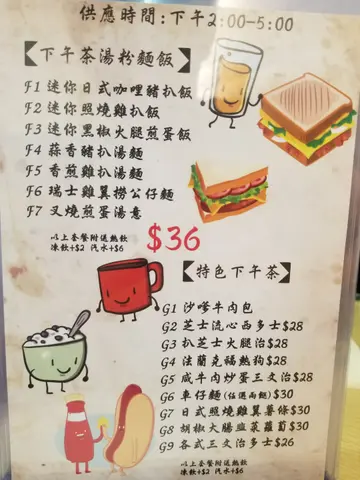 供應時間:下午2:00-5:00
下午茶湯粉麵飯
F1 迷你日式咖哩豬扒飯
F2 迷你照燒雞扒飯
F3 迷你黑椒火腿煎蛋飯
F4 蒜香豬扒湯麵
F5 香煎雞扒湯麵
F6 瑞士雞翼撈公仔麵
F7 叉燒煎蛋湯意
以上套餐附送熱飲
凍飲+$2 汽水+$6
$36
特色下午茶
G1 沙嗲牛肉包
G2 芝士流心西多士$28
G3 扒芝士火腿治$28
G4 法蘭克福熱狗$28
G5 咸牛肉炒蛋三文治$28
G6 車仔麵(任選兩餸)$30
G7 日式照燒雞翼薯條$30
G8 胡椒大腸韭菜蘿蔔$30
G9 各式三文治多士$26
以上套餐附送熱飲
凍飲+$2 汽水+$6